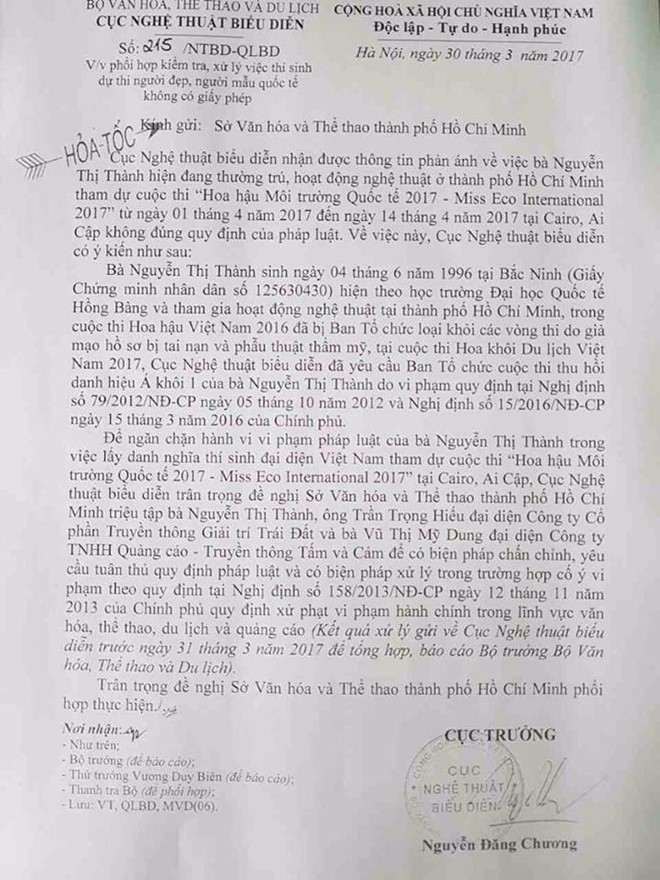 BỘ VĂN HOÁ, THỂ THAO VÀ DU LỊCH
CỤC NGHỆ THUẬT BIỂU DIỄN
CỘNG HOÀ XÃ HỘI CHỦ NGHĨA VIỆT NAM
Độc lập - Tự do - Hạnh phúc
Số: 215 /NTBD-QLBD
Hà Nội, ngày 30 tháng 3 năm 2017
V/v phối hợp kiểm tra, xử lý việc thí sinh
dự thi người đẹp, người mẫu quốc tế
không có giấy phép
HỎA-TỐC
Kính gửi: Sở Văn hóa và Thể thao thành phố Hồ Chí Minh
Cục Nghệ thuật biểu diễn nhận được thông tin phản ánh về việc bà Nguyễn
Thị Thành hiện đang thường trú, hoạt động nghệ thuật ở thành phố Hồ Chí Minh
tham dự cuộc thi “Hoa hậu Môi trường Quốc tế 2017 - Miss Eco International
2017” từ ngày 01 tháng 4 năm 2017 đến ngày 14 tháng 4 năm 2017 tại Cairo, Ai
Cập không đúng quy định của pháp luật. Về việc này, Cục Nghệ thuật biểu diễn
có ý kiến như sau:
Bà Nguyễn Thị Thành sinh ngày 04 tháng 6 năm 1996 tại Bắc Ninh (Giấy
Chứng minh nhân dân số 125630430) hiện theo học trường Đại học Quốc tế
Hồng Bàng và tham gia hoạt động nghệ thuật tại thành phố Hồ Chí Minh, trong
cuộc thi Hoa hậu Việt Nam 2016 đã bị Ban Tổ chức loại khỏi các vòng thi do giả
mạo hồ sơ bị tai nạn và phẫu thuật thẩm mỹ, tại cuộc thi Hoa khôi Du lịch Việt
Nam 2017, Cục Nghệ thuật biểu diễn đã yêu cầu Ban Tổ chức cuộc thi thu hồi
danh hiệu Á khôi 1 của bà Nguyễn Thị Thành do vi phạm quy định tại Nghị định
số 79/2012/NĐ-CP ngày 05 tháng 10 năm 2012 và Nghị định số 15/2016/NĐ-CP
ngày 15 tháng 3 năm 2016 của Chính phủ.
Để ngăn chặn hành vi vi phạm pháp luật của bà Nguyễn Thị Thành trong
việc lấy danh nghĩa thí sinh đại diện Việt Nam tham dự cuộc thi “Hoa hậu Môi
trường Quốc tế 2017 - Miss Eco International 2017” tại Cairo, Ai Cập, Cục Nghệ
thuật biểu diễn trân trọng đề nghị Sở Văn hóa và Thể thao thành phố Hồ Chí
Minh triệu tập bà Nguyễn Thị Thành, ông Trần Trọng Hiếu đại diện Công ty Cổ
phần Truyền thông Giải trí Trái Đất và bà Vũ Thị Mỹ Dung đại diện Công ty
TNHH Quảng cáo - Truyền thông Tấm và Cám để có biện pháp chấn chỉnh, yêu
cầu tuân thủ quy định pháp luật và có biện pháp xử lý trong trường hợp cố ý vi
phạm theo quy định tại Nghị định số 158/2013/NĐ-CP ngày 12 tháng 11 năm
2013 của Chính phủ quy định xử phạt vi phạm hành chính trong lĩnh vực văn
hóa, thể thao, du lịch và quảng cáo (Kết quả xử lý gửi về Cục Nghệ thuật biểu
diễn trước ngày 31 tháng 3 năm 2017 để tổng hợp, báo cáo Bộ trưởng Bộ Văn
hóa, Thể thao và Du lịch).
Trân trọng đề nghị Sở Văn hóa và Thể thao thành phố Hồ Chí Minh phối
hợp thực hiện./.
Nơi nhận:
- Như trên;
- Bộ trưởng (để báo cáo);
- Thứ trưởng Vương Duy Biên (để báo cáo);
- Thanh tra Bộ (để phối hợp);
- Lưu: VT, QLBD, MVD(06).
CỤC TRƯỞNG
CỤC
NGHỆ THUẬT
BIỂU DIỄN
Nguyễn Đăng Chương